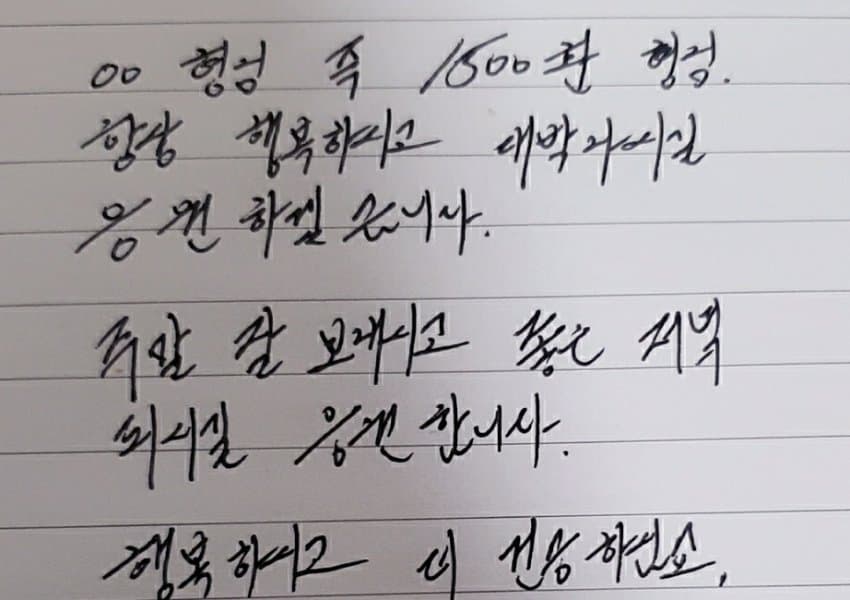 00 형님 축 1500회 형님.
항상 행복하시고 대박나시길
응원 하겠습니다.
주말 잘 보내시고 좋은 저녁
되시길 응원합니다.
행복하시고 더 건승하십쇼,